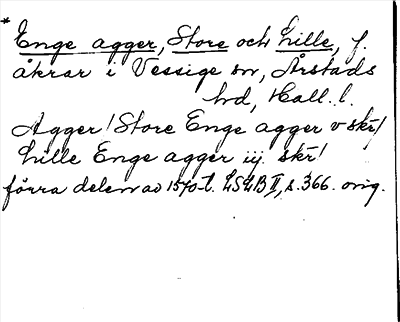 * Enge agger, Store och Lille, f.
åkrar i Vessige sn, Årstads
hd, Hall. l.
Agger / Store Enge agger v skr /
Lille Enge agger iij. skr /
förra delen av 1570-t. LSLB II, s. 366. orig.